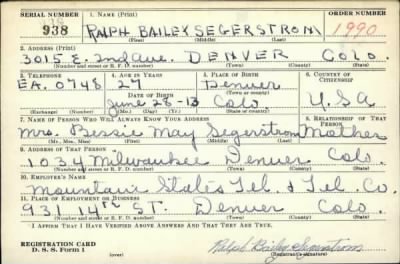 SERIAL NUMBER 1. NAME (Print) ORDER NUMBER
938 RALPH BAILEY SEGERSTROM 1990
(First) (Middle) (Last)
2. ADDRESS (Print)
3015 E. 2nd Ave. DENVER Colo.
(Number and street or R. F. D. number) (Town) (County) (State)
3. TELEPHONE 4. AGE IN YEARS 5. PLACE OF BIRTH 6. COUNTRY OF CITIZENSHIP
EA. 0748 27 Denver
DATE OF BIRTH (Town or county)
June 28-13 Colo U.S.A
(Exchange) (Number) (Mo.) (Day) (Yr.) (State or country)
7. NAME OF PERSON WHO WILL ALWAYS KNOW YOUR ADDRESS 8. RELATIONSHIP OF THAT PERSON
Mrs. Bessie May Segerstrom Mother
(Mr., Mrs., Miss) (First) (Middle) (Last)
9. ADDRESS OF THAT PERSON
1034 Milwaukee Denver Colo.
(Number and street or R. F. D. number) (Town) (County) (State)
10. EMPLOYER'S NAME
Mountain States Tel. & Tel. Co.
11. PLACE OF EMPLOYMENT OR BUSINESS
931 14th ST. Denver Colo.
(Number and street or R. F. D. number) (Town) (County) (State)
I AFFIRM THAT I HAVE VERIFIED ABOVE ANSWERS AND THAT THEY ARE TRUE.
REGISTRATION CARD
D. S. S. Form 1 (over) Ralph Bailey Segerstrom